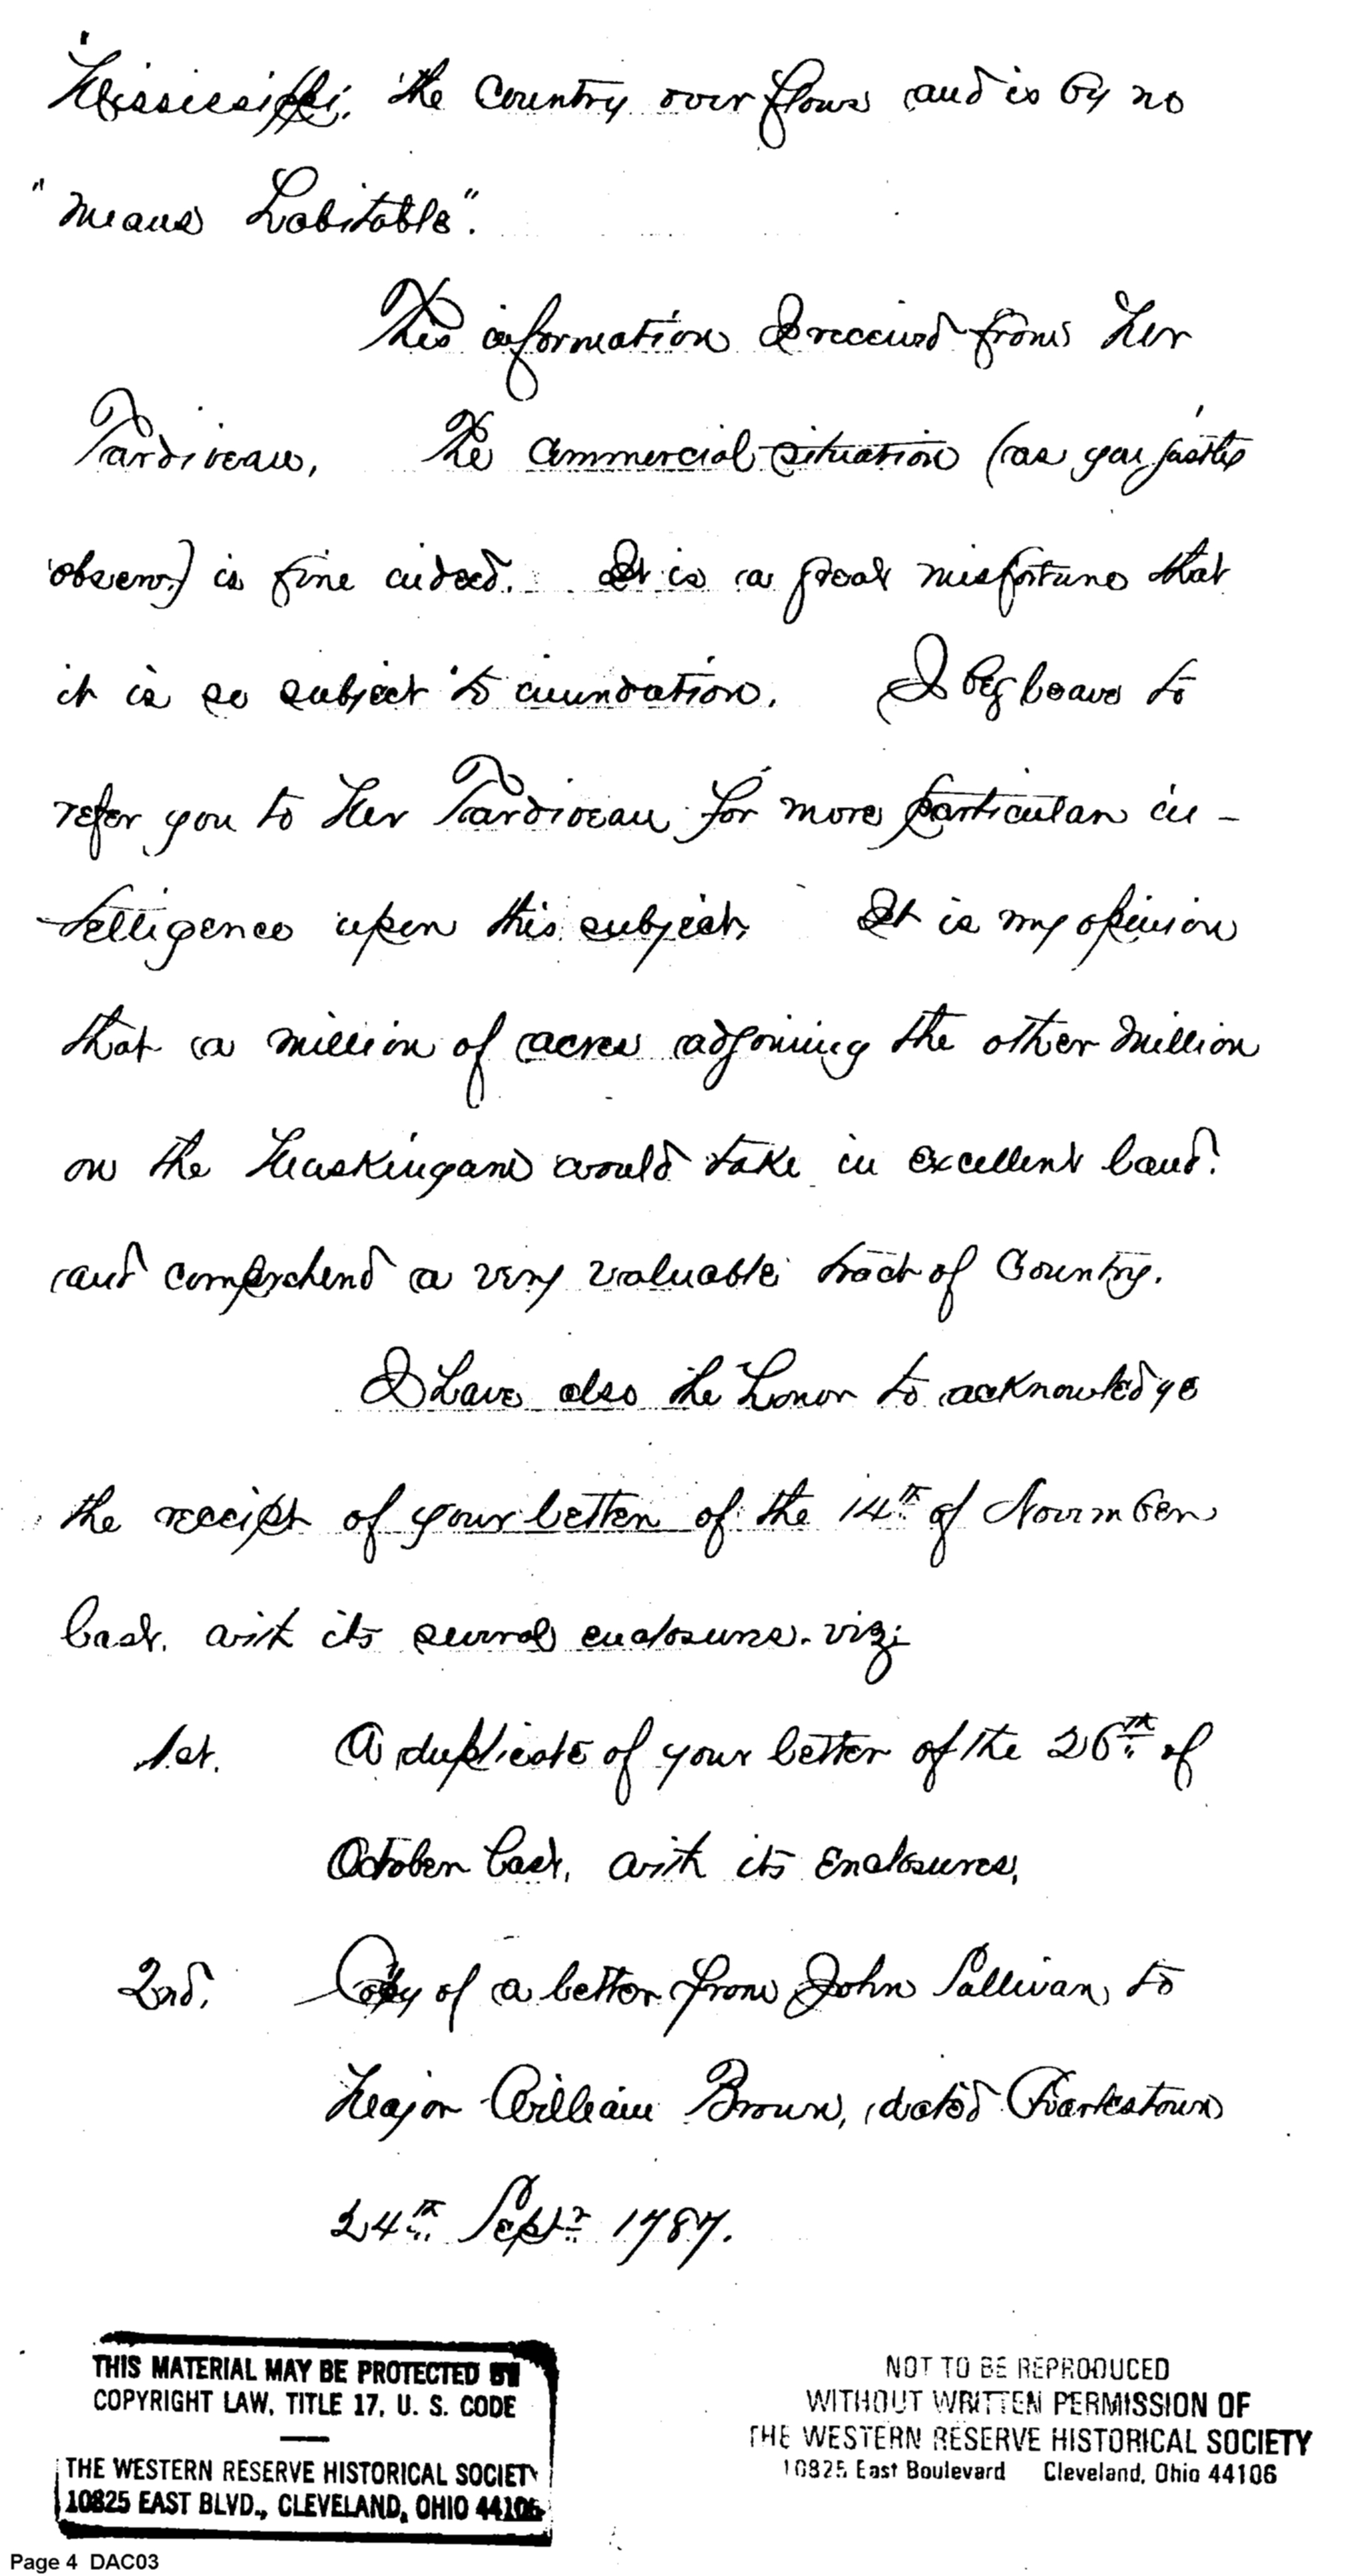 "Mississippi, the Country over flows and is by no
"means habitable".
This information I received from Mr
Tardiveau. The Commercial situation (as you justly
observe) is fine indeed. It is a great misfortune that
it is so subject to inundation. I beg leave to
refer you to Mr Tardiveau for more particular in-
telligence upon this subject. It is my opinion
that a million of acres adjoining the other million
on the Muskingam would take in excellent land.
and comprehend a very valuable tract of Country.
I have also the honor to acknowledge
the receipt of your letter of the 14th of November
last. with its several enclosures. viz:
1st. A duplicate of your letter of the 26th of
October last, with its Enclosures,
2nd. Copy of a letter from John Sullivan, to
Major William Brown, dated Charlestown
24th Septr 1787.
THIS MATERIAL MAY BE PROTECTED BY
COPYRIGHT LAW, TITLE 17, U. S. CODE
THE WESTERN RESERVE HISTORICAL SOCIETY
10825 EAST BLVD., CLEVELAND, OHIO 44106
NOT TO BE REPRODUCED
WITHOUT WRITTEN PERMISSION OF
THE WESTERN RESERVE HISTORICAL SOCIETY
10825 East Boulevard Cleveland, Ohio 44106
Page 4 DAC03